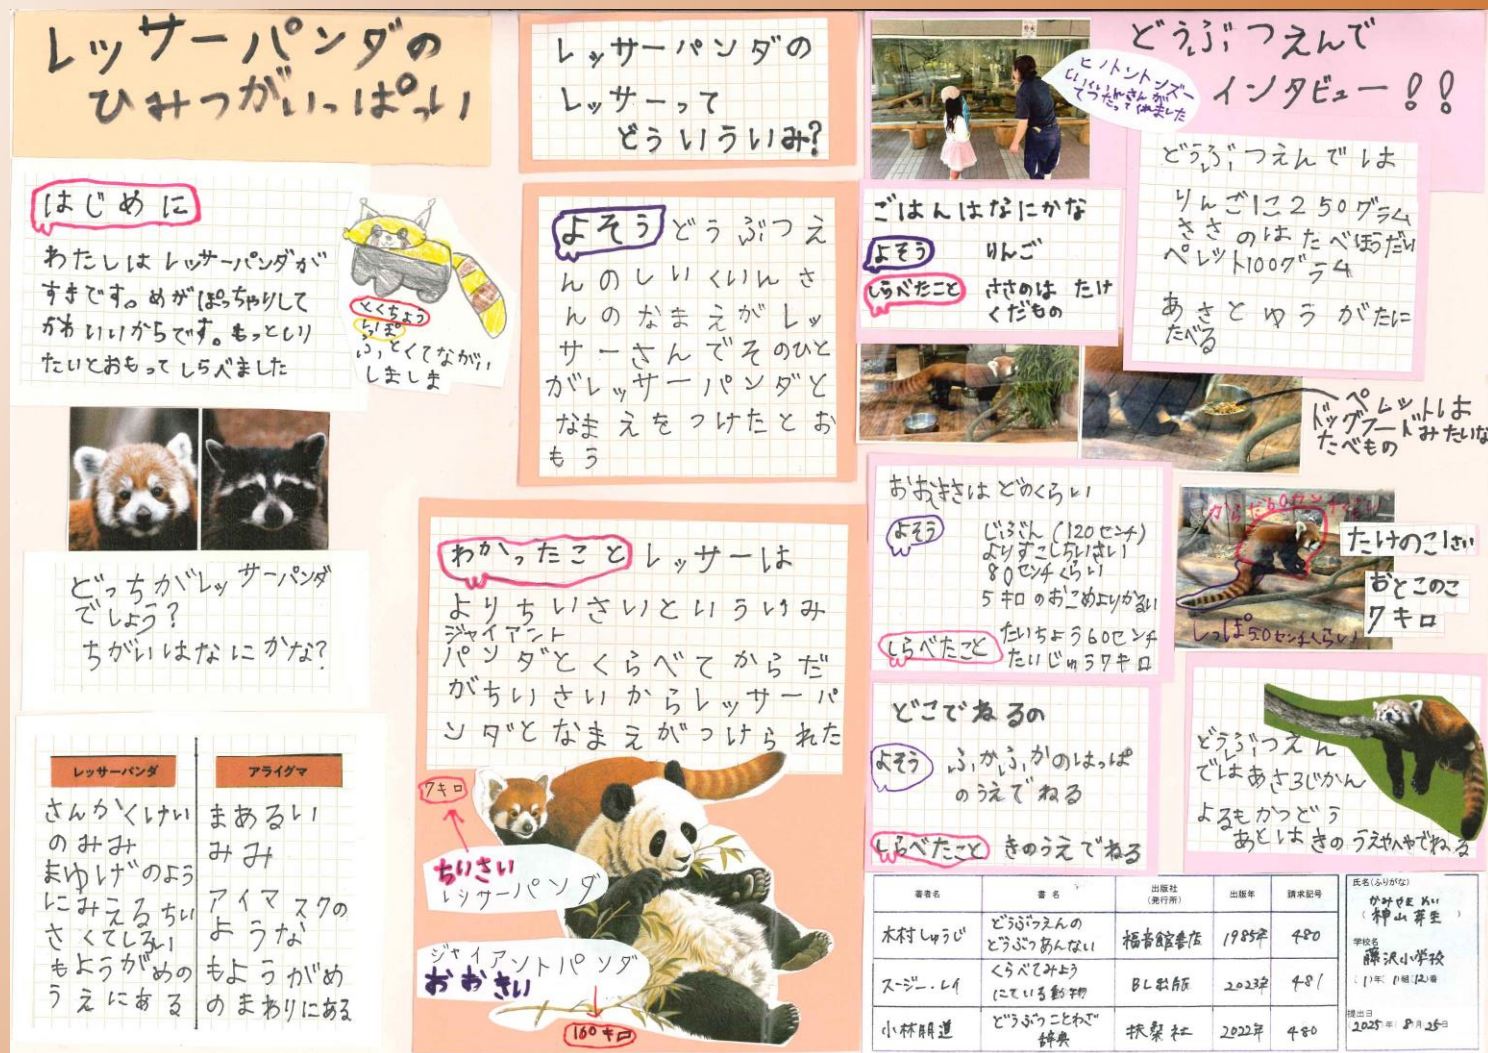 レッサーパンダの
ひみつがいっぱい
はじめに
わたしは レッサーパンダが
すきです。めがぽっちゃりして
かわいいからです。もっとしり
たいとおもって しらべました
とくちょう
しっぽ
ふとくてながい
しましま
どっちがレッサーパンダ
でしょう?
ちがいはなにかな?
レッサーパンダ
さんかくけい
のみみ
まゆげのよう
にみえるちい
さくてしろい
もようがめの
うえにある
アライグマ
まあるい
みみ
アイマスクの
ような
もようがめ
のまわりにある
レッサーパンダの
レッサーって
どういういみ?
よそう どうぶつえ
んのしいくいんさ
んのなまえがレッ
サーさんでそのひと
がレッサーパンダと
なまえをつけたとお
もう
わかったこと レッサーは
よりちいさいといういみ
ジャイアント
パンダとくらべてからだ
がちいさいからレッサーパ
ンダとなまえがつけられた
7キロ
ちいさい
レッサーパンダ
ジャイアントパンダ
おおきい
160キロ
どうぶつえんで
インタビュー!!
しいくいんさんが
てつだってくれました
どうぶつえんでは
りんご1こ250グラム
ささのはたべほうだい
ペレット100グラム
あさとゆうがたに
たべる
ごはんはなにかな
よそう りんご
しらべたこと ささのは たけ
くだもの
ペレットは
ドッグフードみたいな
たべもの
おおきさはどのくらい
よそう じぶん(120センチ)
よりすこしちいさい
80センチくらい
5キロのおこめよりかるい
しらべたこと たいちょう60センチ
たいじゅう7キロ
からだ60センチくらい
しっぽ50センチくらい
たけのこ1さい
おとこのこ
7キロ
どこでねるの
よそう ふかふかのはっぱ
のうえでねる
しらべたこと きのうえでねる
どうぶつえん
ではあさ3じかん
よるもかつどう
あとはきのうえやへやでねる
著者名 書名 出版社(発行所) 出版年 請求記号
木村しゅうじ どうぶつえんのどうぶつあんない 福音館書店 1985年 480
スージー・レイ くらべてみようにている動物 BL出版 2023年 481
小林朋道 どうぶつことわざ辞典 扶桑社 2022年 480
氏名(ふりがな)
かみやま めい
(神山 芽生)
学校名
藤沢小学校
(1)年 1組 12番
提出日
2025年 8月25日